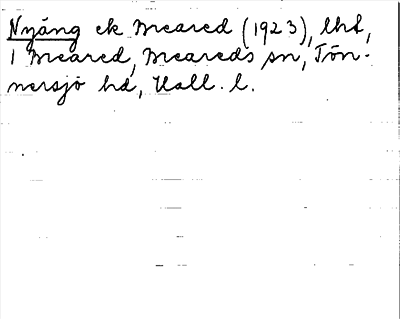 Nyäng ek Meared (1923), lht,
1 Meared, Meareds sn, Tön-
nersjö hd, Hall. l.